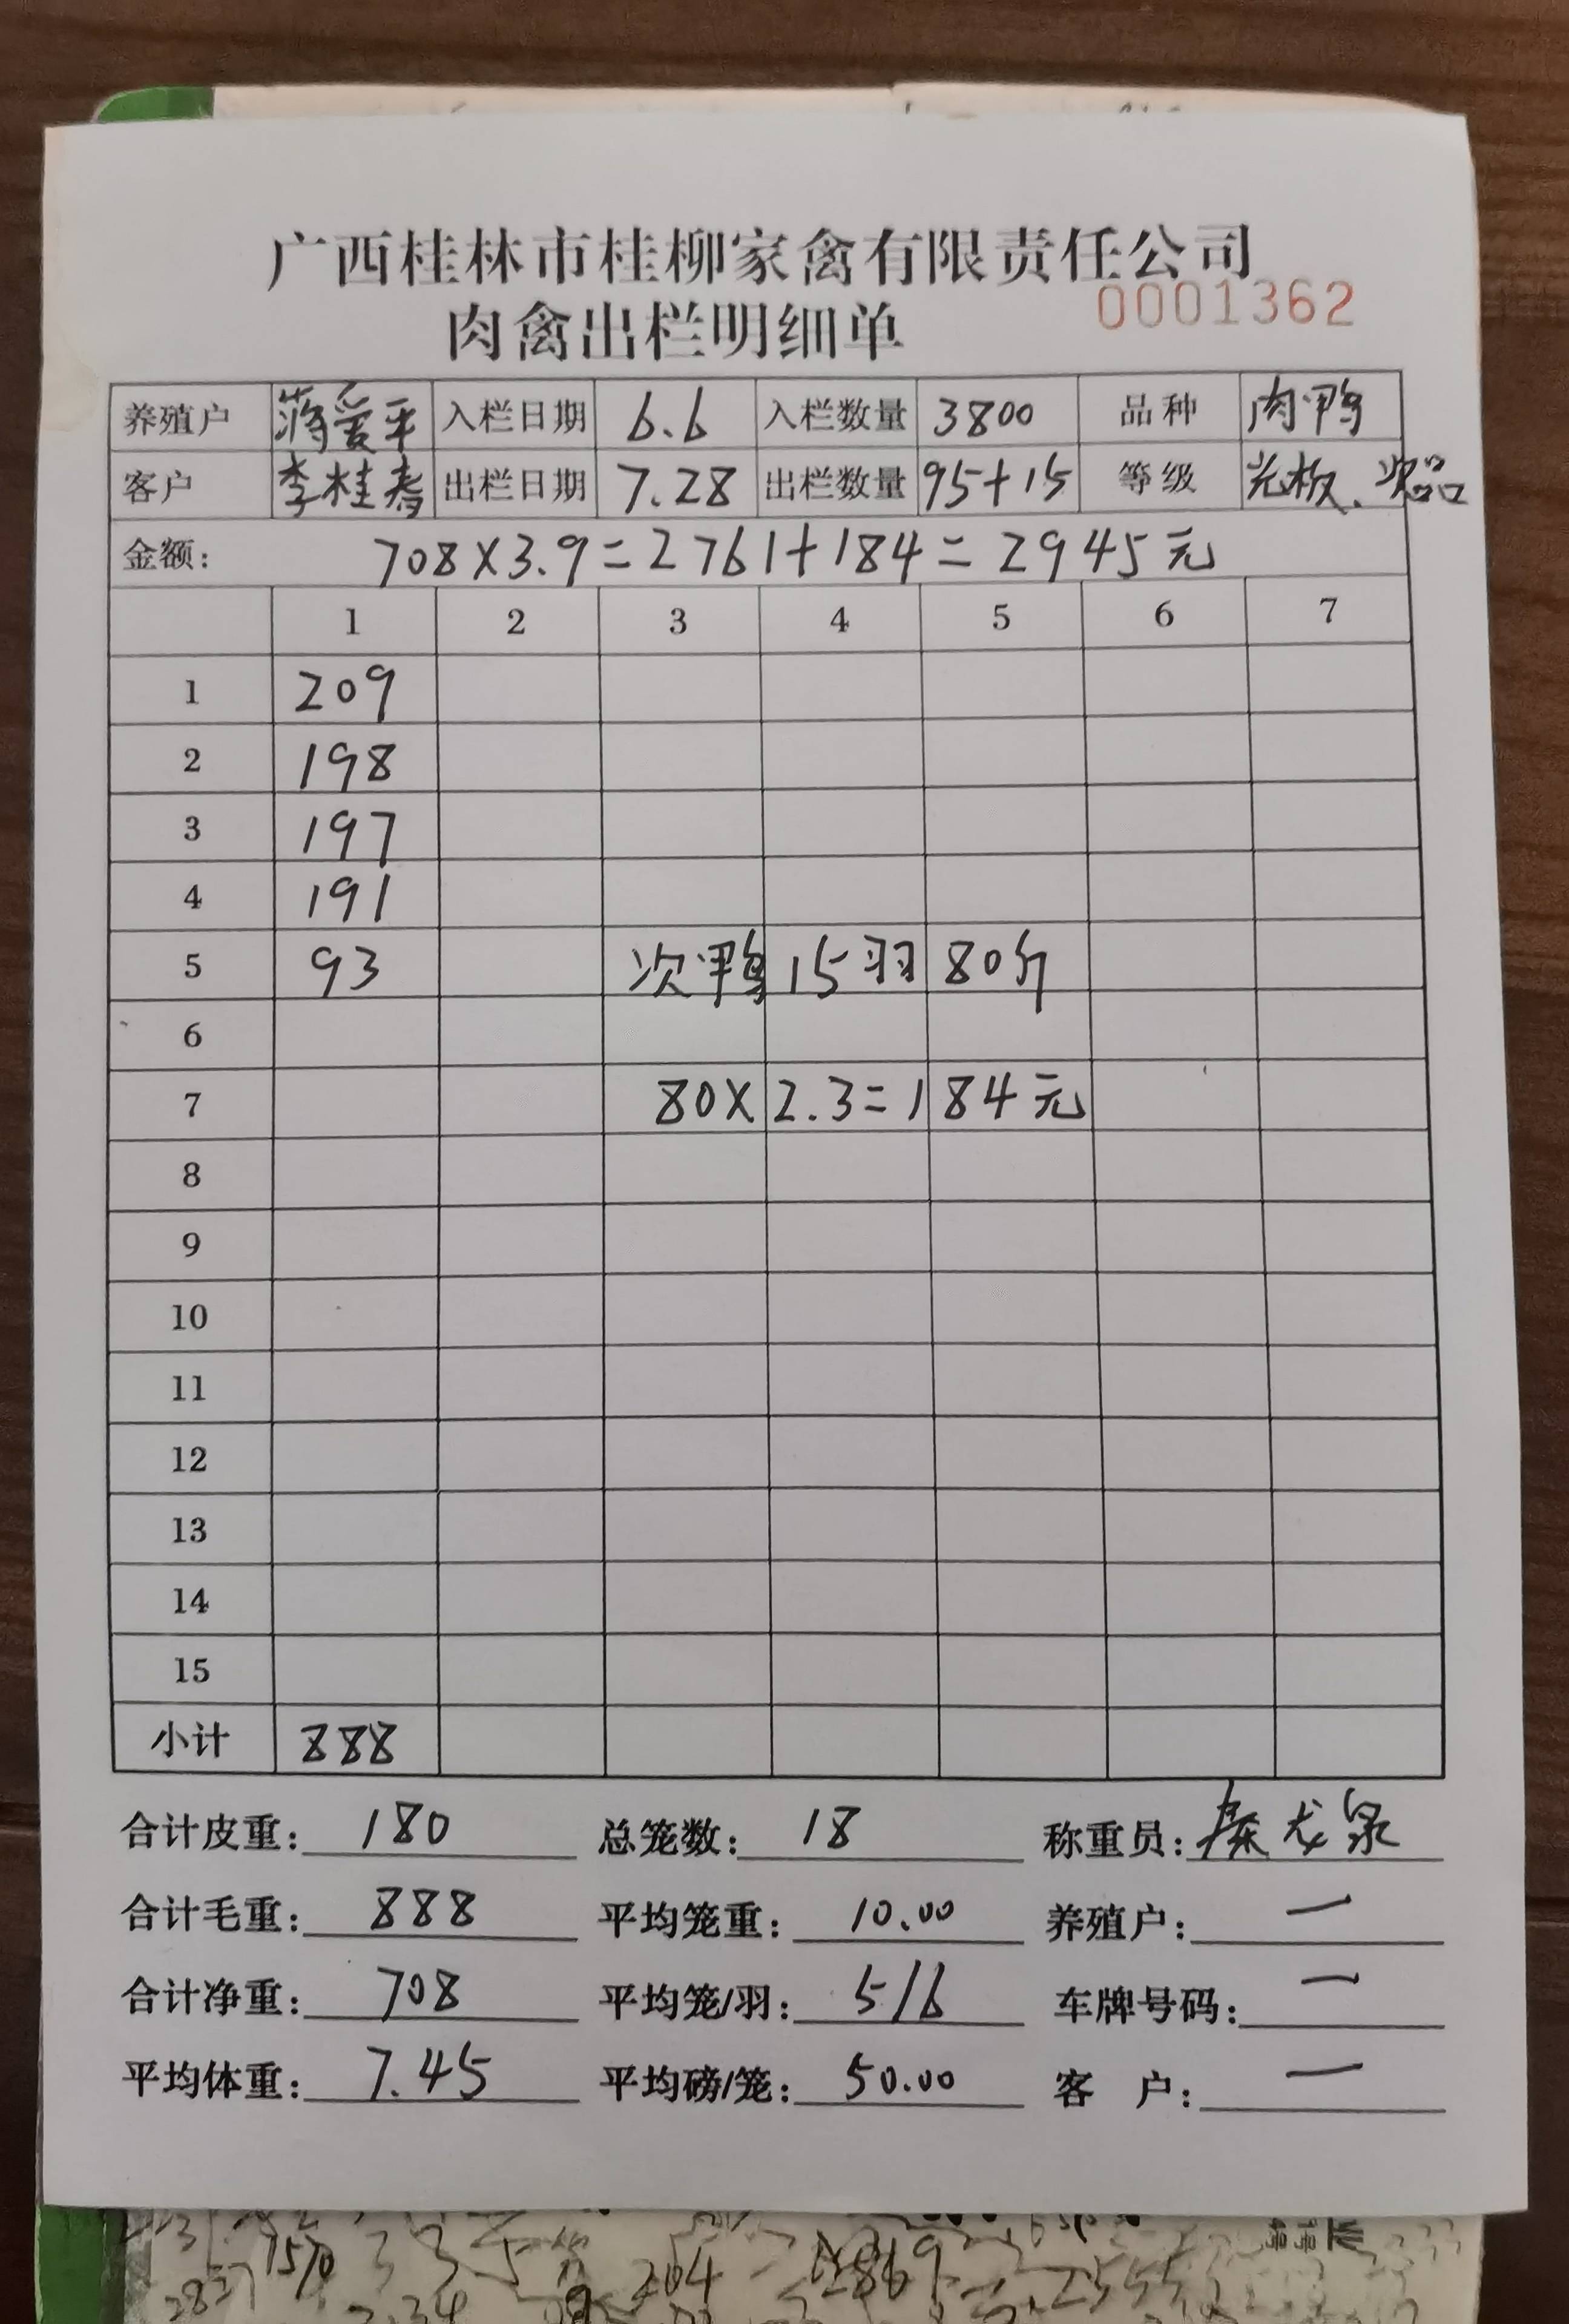 广西桂林市桂柳家禽有限责任公司
肉禽出栏明细单 0001362
养殖户 蒋爱平 入栏日期 6.6 入栏数量 3800 品种 肉鸭
客户 李桂寿 出栏日期 7.28 出栏数量 95+15 等级 光板、次品
金额: 708×3.9=2761+184=2945元
1 2 3 4 5 6 7
1 209
2 198
3 197
4 191
5 93 次鸭15羽80斤
6
7 80×2.3=184元
8
9
10
11
12
13
14
15
小计 888
合计皮重: 180 总笼数: 18 称重员: 秦龙泉
合计毛重: 888 平均笼重: 10.00 养殖户: 一
合计净重: 708 平均笼/羽: 5/6 车牌号码: 一
平均体重: 7.45 平均磅/笼: 50.00 客 户: 一
204
2869